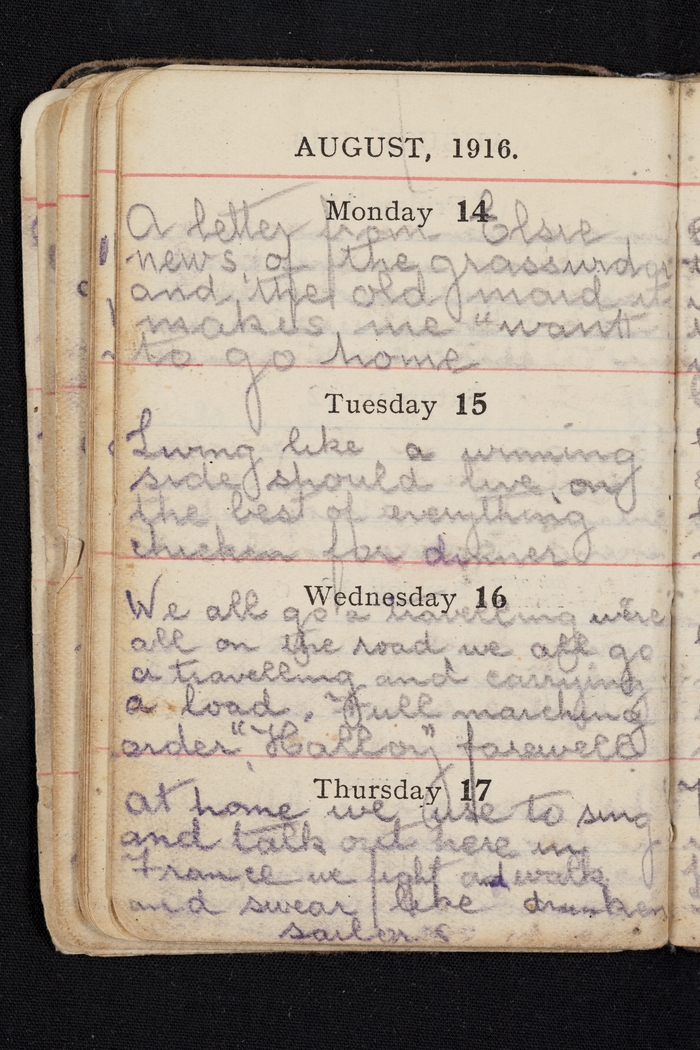 AUGUST, 1916.
Monday 14
A letter from Elsie
news, of the
and, the old maid it
makes me "want
to go home
Tuesday 15
Living like a winning
side should live, on
the best of everything
chicken for dinner
Wednesday 16
We all go a travelling were
all on the road we all go
a travelling and carrying
a load. Full marching
order "Halloy" farewell
Thursday 17
At home we use to sing
and talk out here in
France we fight and walk
and swear like drunken
sailors